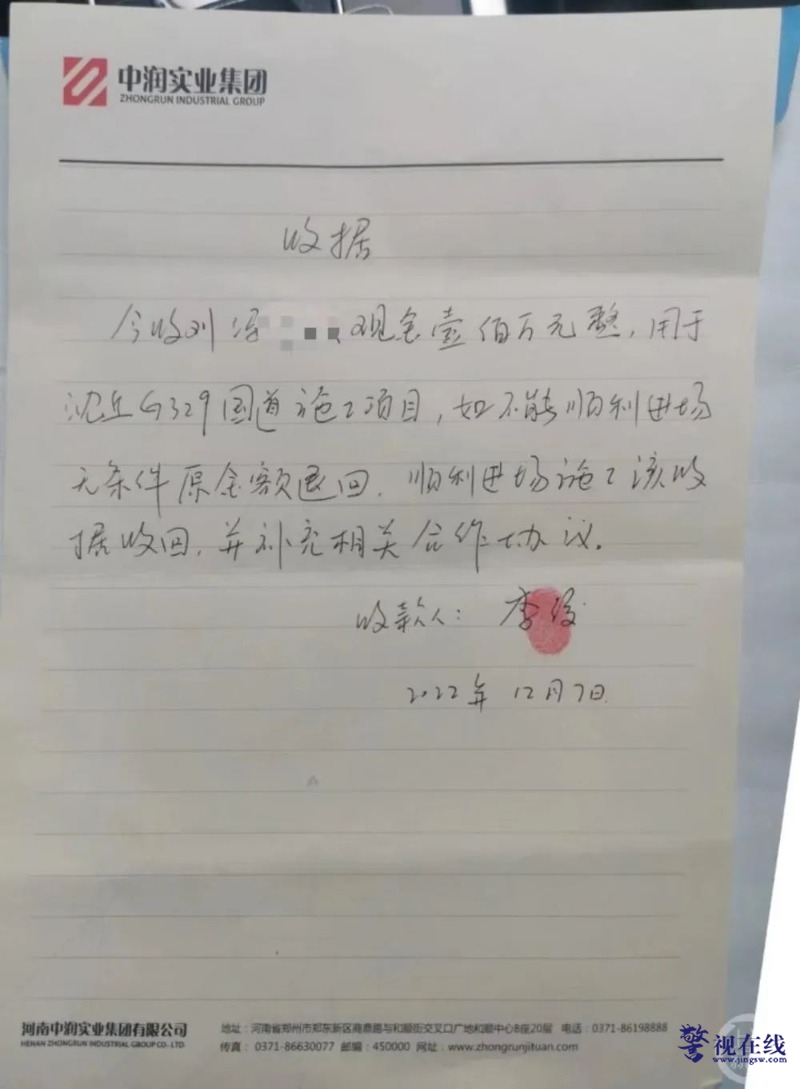 中润实业集团
ZHONGRUN INDUSTRIAL GROUP
收据
今收刘 现金壹佰万元整，用于
沈丘G329国道施工项目，如不能顺利进场
无条件原金额退回。顺利进场施工该收
据收回，并补充相关合作协议。
收款人：李俊
2022年12月7日
河南中润实业集团有限公司
HENAN ZHONGRUN INDUSTRIAL GROUP CO.,LTD.
地址：河南省郑州市郑东新区商鼎路与和顺街交叉口广地和顺中心B座20层 电话：0371-86198888
传真：0371-86630077 邮编：450000 网址：www.zhongrunjituan.com
警视在线
www.jingsw.com